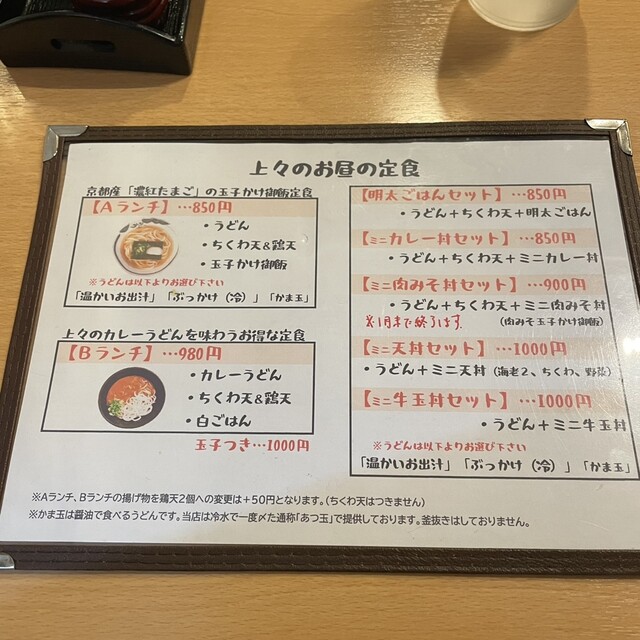 上々のお昼の定食
京都産「濃紅たまご」の玉子かけ御飯定食
【Aランチ】…850円
・うどん
・ちくわ天&鶏天
・玉子かけ御飯
※うどんは以下よりお選び下さい
「温かいお出汁」「ぶっかけ（冷）」「かま玉」
上々のカレーうどんを味わうお得な定食
【Bランチ】…980円
・カレーうどん
・ちくわ天&鶏天
・白ごはん
玉子つき…1000円
【明太ごはんセット】…850円
・うどん＋ちくわ天＋明太ごはん
【ミニカレー丼セット】…850円
・うどん＋ちくわ天＋ミニカレー丼
【ミニ肉みそ丼セット】…900円
・うどん＋ちくわ天＋ミニ肉みそ丼
※1月まで終了です。
（肉みそ玉子かけ御飯）
【ミニ天丼セット】…1000円
・うどん＋ミニ天丼（海老2、ちくわ、野菜）
【ミニ牛玉丼セット】…1000円
・うどん＋ミニ牛玉丼
※うどんは以下よりお選び下さい
「温かいお出汁」「ぶっかけ（冷）」「かま玉」
※Aランチ、Bランチの揚げ物を鶏天2個への変更は＋50円となります。（ちくわ天はつきません）
※かま玉は醤油で食べるうどんです。当店は冷水で一度〆た通称「あつ玉」で提供しております。釜抜きはしておりません。